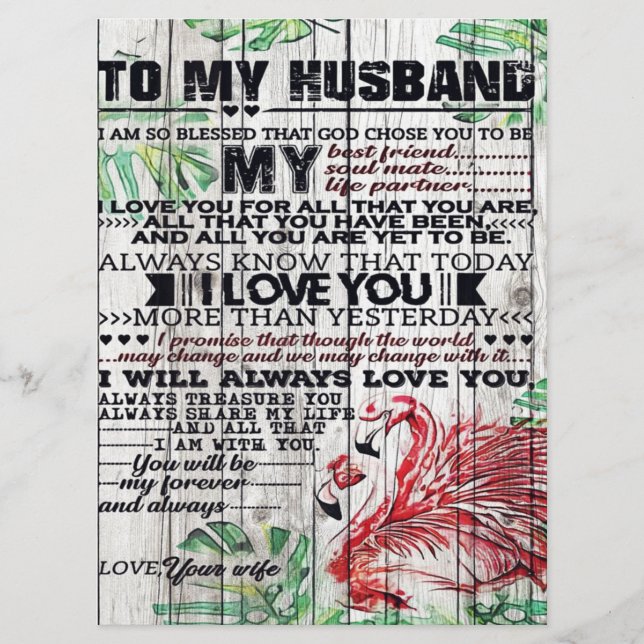 TO MY HUSBAND
I AM SO BLESSED THAT GOD CHOSE YOU TO BE
MY best friend............
soul mate............
life partner..........
I LOVE YOU FOR ALL THAT YOU ARE,
>>>>> ALL THAT YOU HAVE BEEN, <<<<<
AND ALL YOU ARE YET TO BE.
ALWAYS KNOW THAT TODAY
I LOVE YOU
>>>MORE THAN YESTERDAY<<<
♥ ♥ I promise that though the world ♥ ♥ ♥
...may change and we may change with it....
I WILL ALWAYS LOVE YOU,
ALWAYS TREASURE YOU
ALWAYS SHARE MY LIFE
AND ALL THAT
I AM WITH YOU.
You will be
my forever
and always
LOVE, Your wife